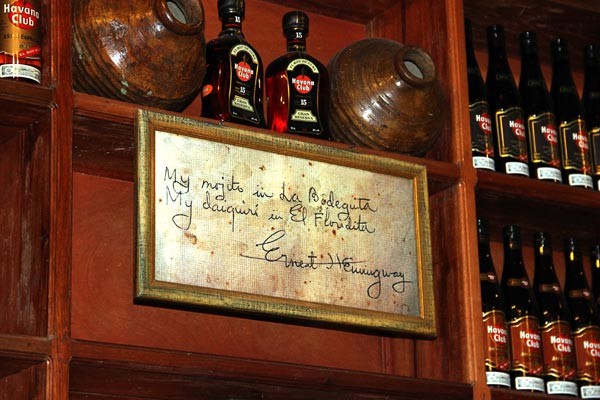 Havana
Club
15
15
Havana
Club
15
Havana
Club
15
My mojito in La Bodeguita
My daiquiri in El Floridita
Ernest Hemingway
Havana
Club
Havana
Club
Havana
Club
Havana
Club
Havana
Club
Havana
Club
Havana
Club
Havana
Club